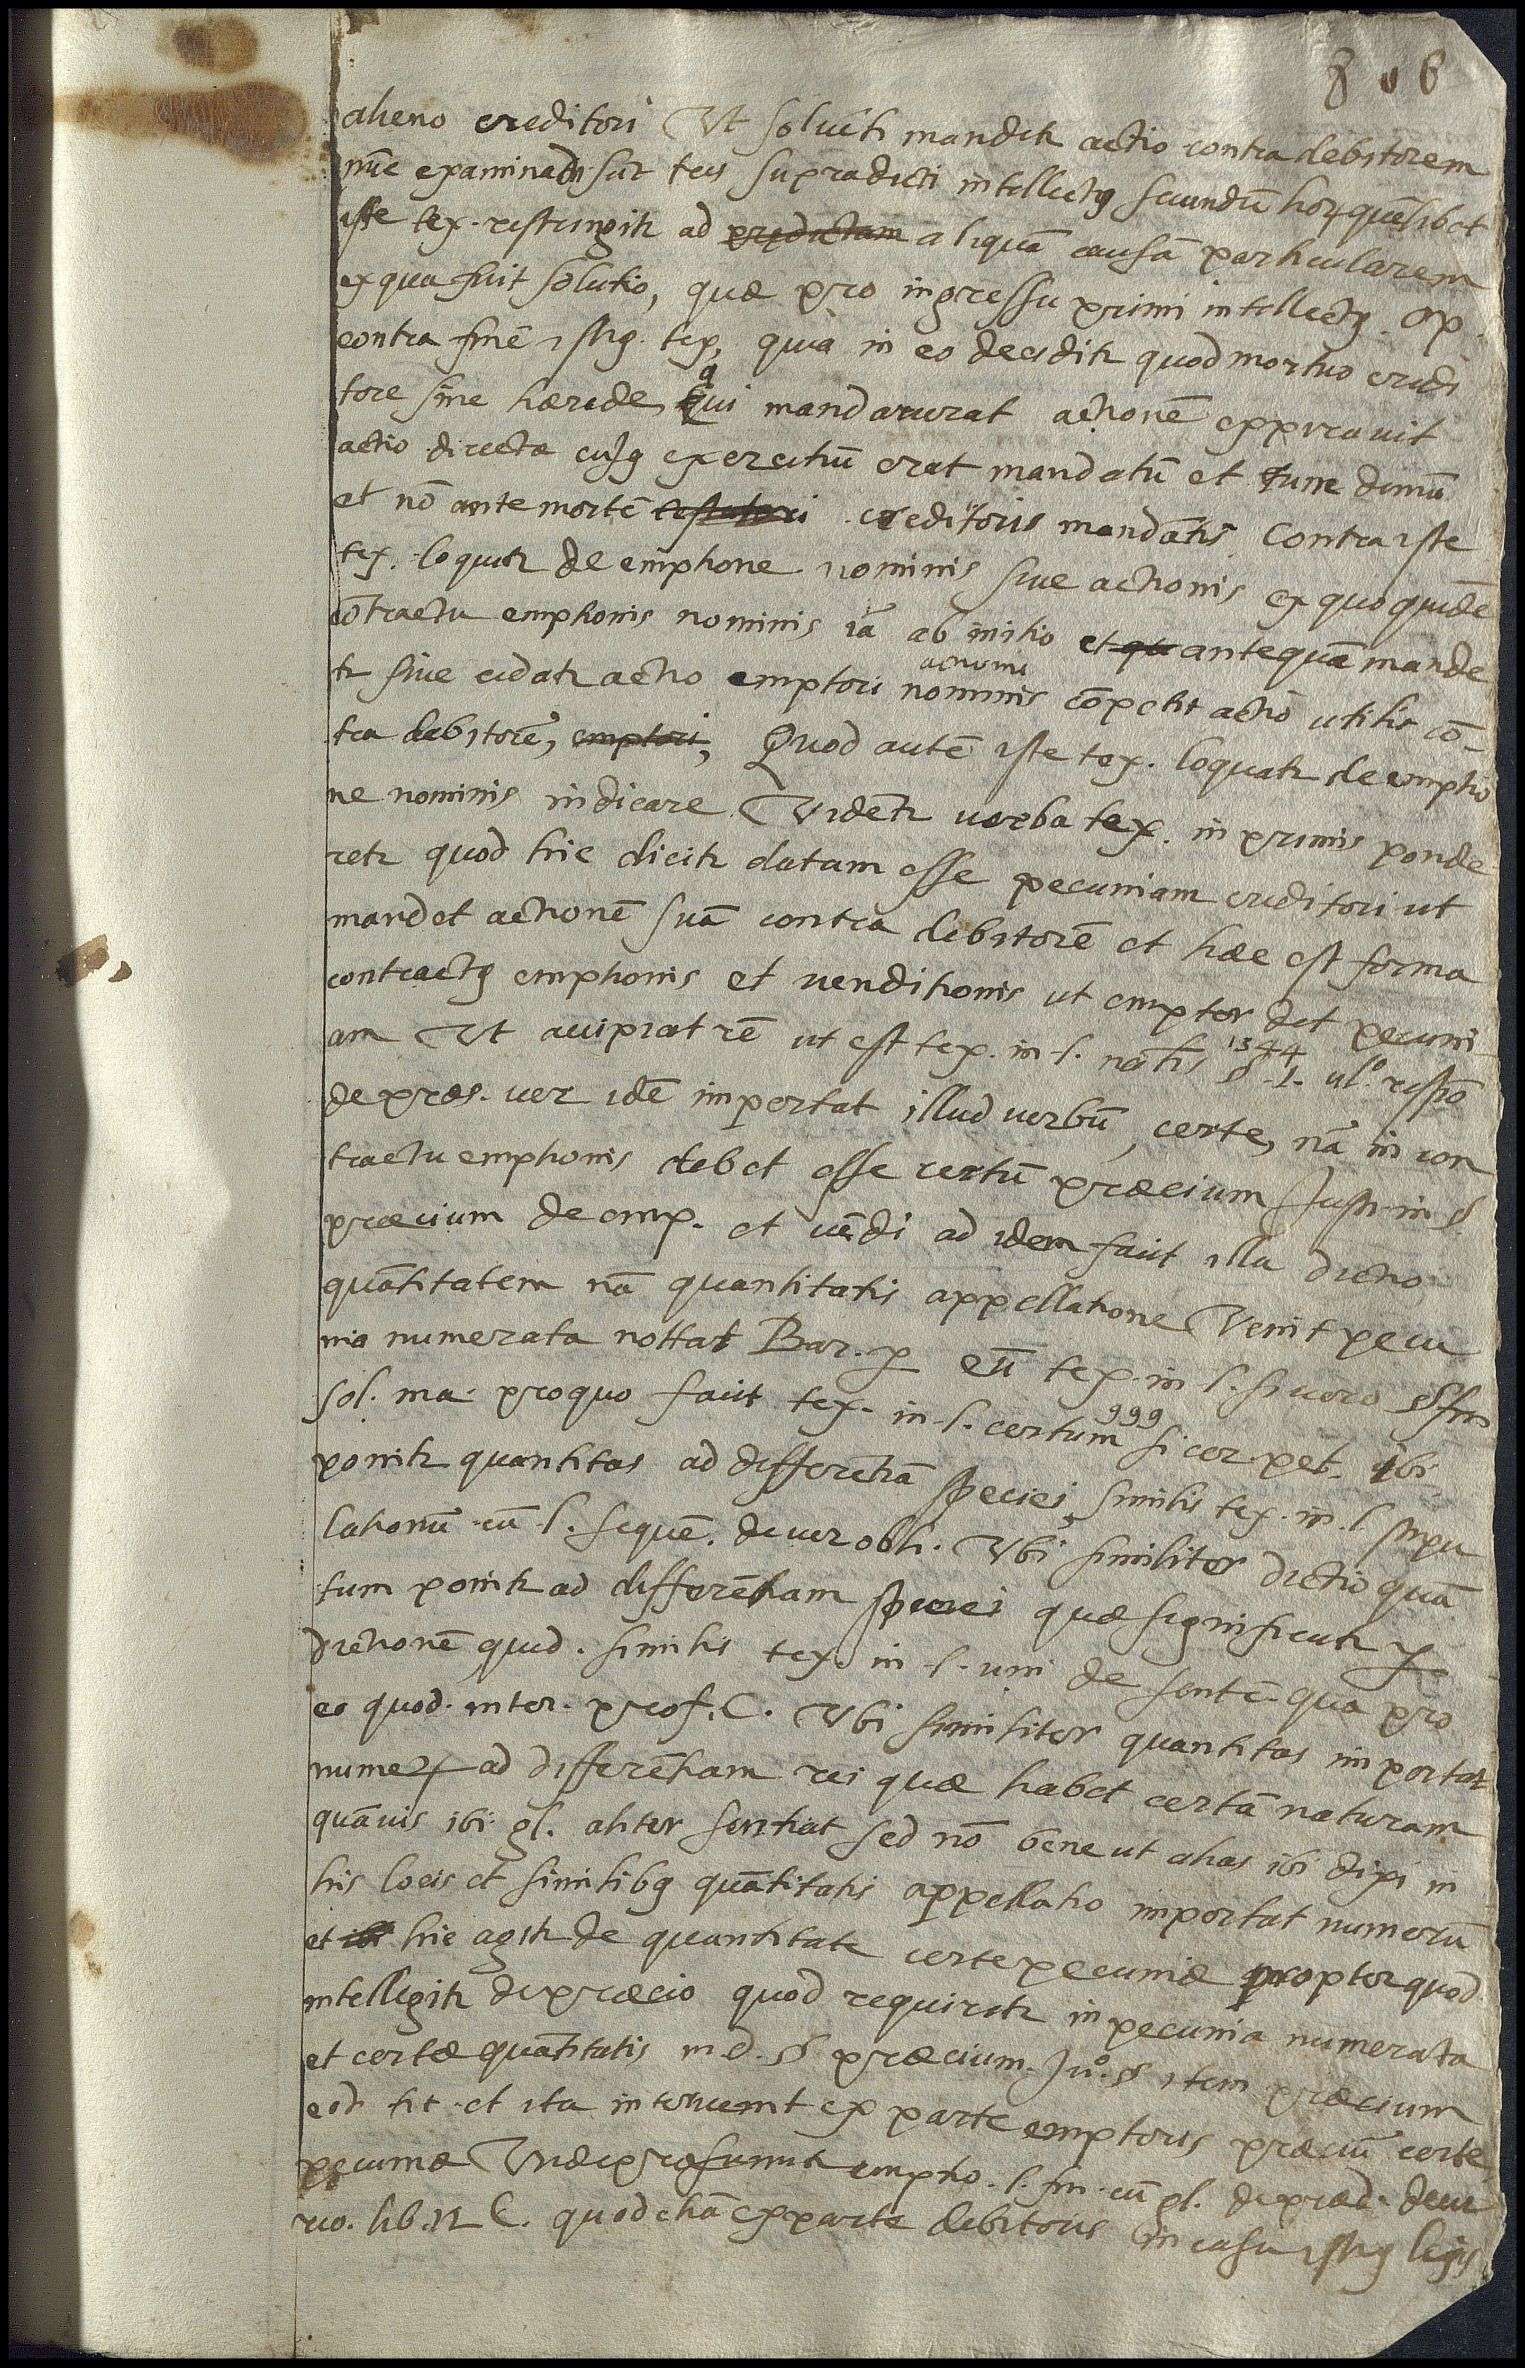 806
alieno creditori Ut soluēti mandetr actio contra debitorem
nūc examinādi sūt tres supradicti intellectꝰ secundū horꝝ quēlibet
iste tex. restringitr ad predictam aliquā causā particularem
ex qua fuit solutio, quæ pro ingressu primi intellectꝰ. op.
contra finē istiꝰ tex, quia in eo deciditr quod mortuo credi
tore sine hærede, qui mandaverat actionē expiravit
actio directa cuiꝰ exercitiū erat mandatū et tunc demū
et nō ante mortē testatori creditoris mandātis Contra iste
tex. loquitr de emptione nominis sive actionis ex quo quidē
cōtractu emptionis nominis iā ab initio et qu antequā mande
tr sive cedatr actio emptori nominis actionis cōpetit actio utilis cō-
tra debitorē, emptori, Quod autē iste tex. loquatr de emptio
ne nominis indicare Videtr verba tex. in primis ponde
retr quod hic dicitr datam esse pecuniam creditori ut
mandet actionē suā contra debitorē et hæc est forma
contractꝰ emptionis et venditionis ut emptor det pecuni
am Ut accipiat rē ut est tex. in l. natis 1344 § 1. ul.º respō
de præs. ver idē importat illud verbū, certe, nā in con
tractu emptionis debet esse certū præcium Justi. in §
præcium de emp. et vēdi ad idem facit illa dictio
quātitatem nā quantitatis appellatione Venit pecu
nia numerata nottat Bar. ꝑ eū tex. in l. si vero § fin
sol. ma. pro quo facit tex. in l. certum 999 si cer pet. ibi
ponitr quantitas ad differētiā speciei, similis tex. in l stipu
lationū cū l. sequē. de ver obli. Ubi similiter dictio quā
tum ponitr ad differētiam speciei quæ significatr ꝑ
dictionē quid. similis tex. in l. uni de sentē. quæ pro
eo quod. inter. prof. C. Ubi similiter quantitas importat
numeꝝ ad differētiam rei quæ habet certā naturam
quāvis ibi gl. aliter sentiat sed nō bene ut alias ibi dixi in
his locis et similibꝰ quātitatis appellatio importat numerū
et ibi hic agitr de quantitate certe pecuniæ propter quod
intelligitr de præcio quod requiritr in pecunia numerata
et certæ quātitatis in d. § præcium. Juº. § item præcium
eod tit. et ita intervenit ex parte emptoris præciū certe
pecuniæ Unde præsumitr emptio. l. fin. cū gl. de præd. decu
rio. lib. 12 C. quod etiā ex parte debitoris in casu istiꝰ legis